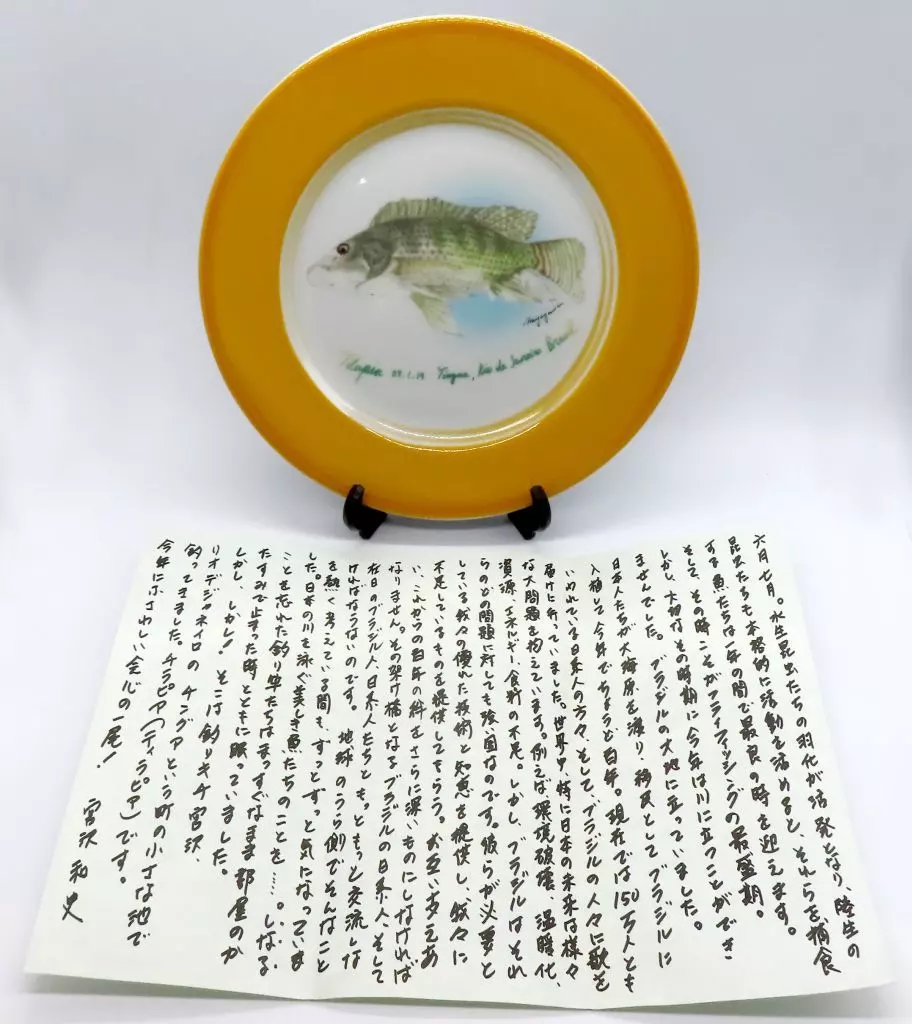 Tilapia 08.6.19 Tingua, Rio de Janeiro Brasil
六月七月。水生昆虫たちの羽化が活発となり、陸生の
昆虫たちも本格的に活動を始めると、それらを捕食
する魚たちは一年の間で最良の時を迎えます。
そして、その時こそがフライフィッシングの最盛期。
しかし、大切なその時期に今年は川に立つことができ
ませんでした。ブラジルの大地に立っていました。
日本人たちが大海原を渡り移民としてブラジルに
入植して今年でちょうど百年。現在では150万人とも
いわれている日系人の方々、そしてブラジルの人々に歌を
届けに行っていました。世界中、特に日本の未来は様々
な大問題を抱えています。例えば環境破壊、温暖化、
資源、エネルギー、食料の不足。しかし、ブラジルはそれ
らのどの問題に対しても強い国なのです。彼らが必要と
している我々の優れた技術と知恵を提供し、我々に
不足しているものを提供してもらう。お互い支えあ
い、これからの百年の絆をさらに深いものにしなければ
なりません。その架け橋となるブラジルの日系人、そして
在日のブラジル人、日系人たちともっともっと交流しな
ければならないのです。地球のうら側でそんなこと
を熱く考えている間も、ずっとずっと気になっていま
した。日本の川を泳ぐ美しき魚たちのことを……。しなる
ことを忘れた釣り竿たちはまっすぐなまま部屋のか
たすみで止まった時とともに眠っていました。
しかし、しかし！そこは釣りキチ宮沢、
リオデジャネイロのチングアという町の小さな池で
釣ってきました。チラピア（ティラピア）です。
今年にふさわしい会心の一尾！
宮沢和史